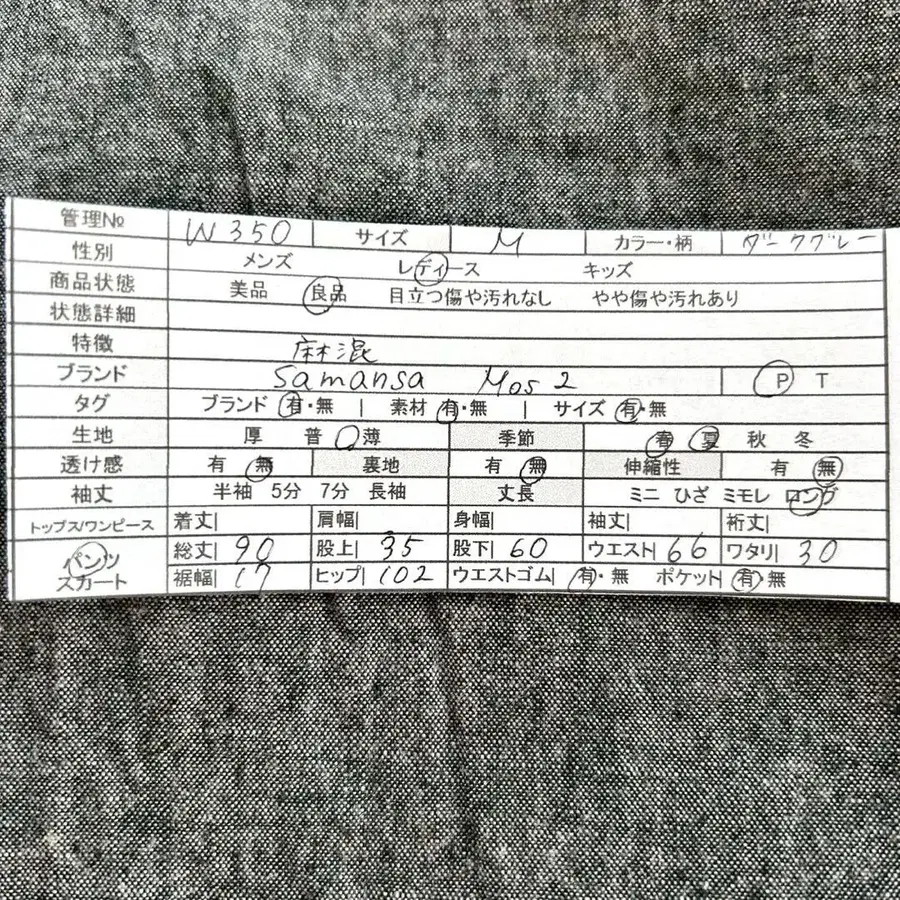 管理№ W350 サイズ M カラー・柄 ダークグレー
性別 メンズ レディース キッズ
商品状態 美品 良品 目立つ傷や汚れなし やや傷や汚れあり
状態詳細
特徴 麻混
ブランド Samansa Mos2 P T
タグ ブランド 有・無 | 素材 有・無 | サイズ 有・無
生地 厚 普 薄 季節 春 夏 秋 冬
透け感 有 無 裏地 有 無 伸縮性 有 無
袖丈 半袖 5分 7分 長袖 丈長 ミニ ひざ ミモレ ロング
トップス/ワンピース 着丈| 肩幅| 身幅| 袖丈| 裄丈|
パンツ 総丈| 90 股上| 35 股下| 60 ウエスト| 66 ワタリ| 30
スカート 裾幅| 17 ヒップ| 102 ウエストゴム| 有・無 ポケット| 有・無